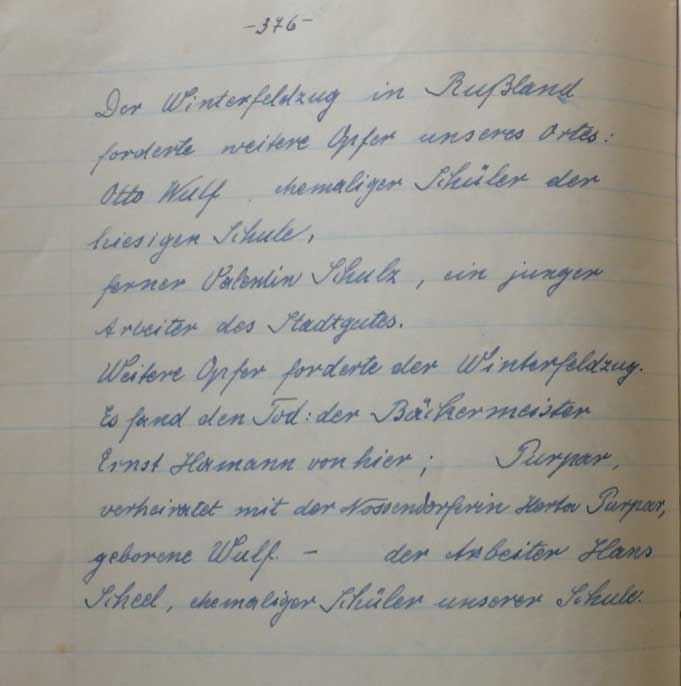 -376-
Der Winterfeldzug in Rußland
forderte weitere Opfer unseres Ortes:
Otto Wulf ehemaliger Schüler der
hiesigen Schule,
ferner Valentin Schulz, ein junger
Arbeiter des Stadtgutes.
Weitere Opfer forderte der Winterfeldzug.
Es fand den Tod: der Bäckermeister
Ernst Hamann von hier; Purpar,
verheiratet mit der Nossendorferin Herta Purpar,
geborene Wulf. - der Arbeiter Hans
Scheel, ehemaliger Schüler unserer Schule.